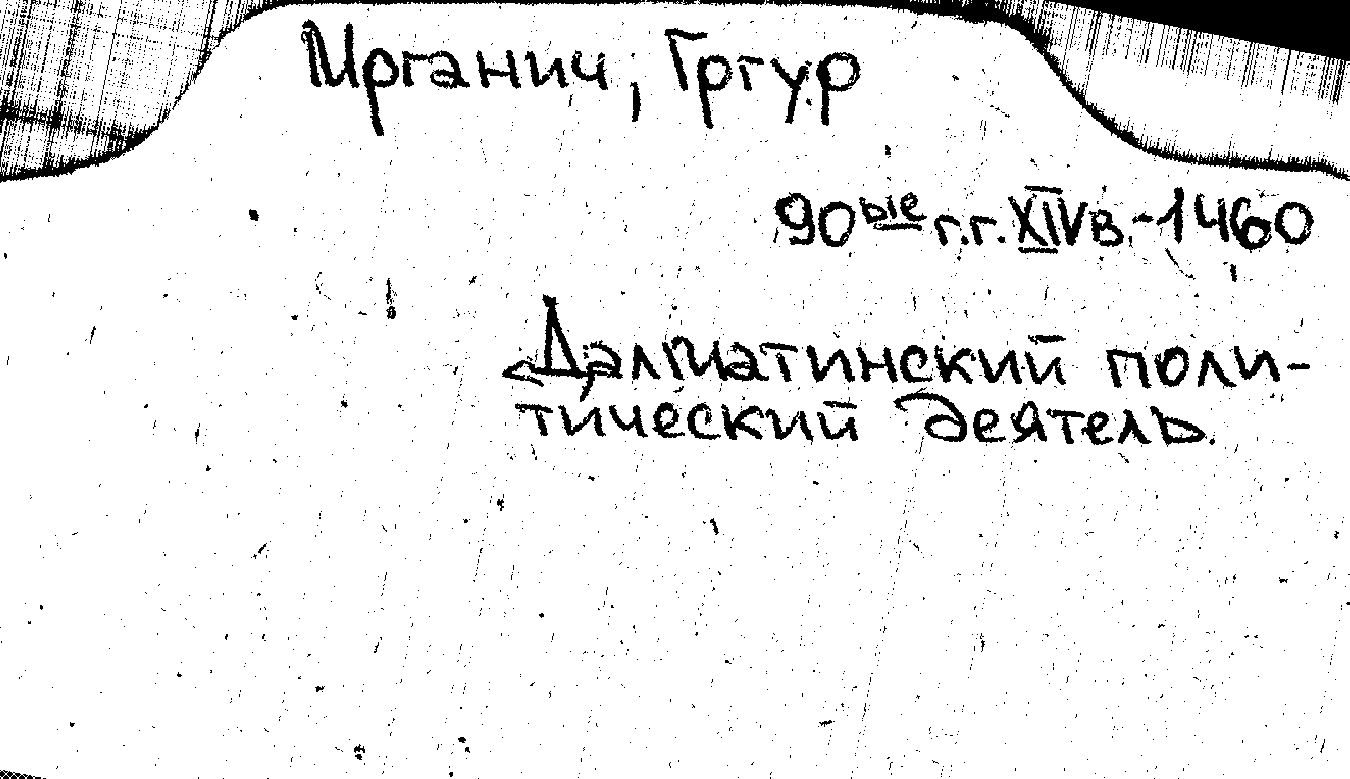 Мрганич, Гргур
90ые г.г. XIVв.-1460
Далматинский поли-
тический деятель.